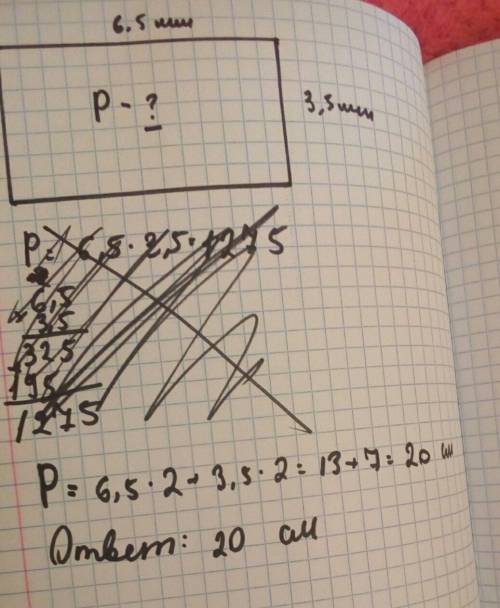 6.5 мм
P - ?
3,5 мм
P = 6,5 · 2,5 = 1275
6,5
× 35
325
195
1275
P = 6,5 · 2 + 3,5 · 2 = 13 + 7 = 20 см
Ответ: 20 см